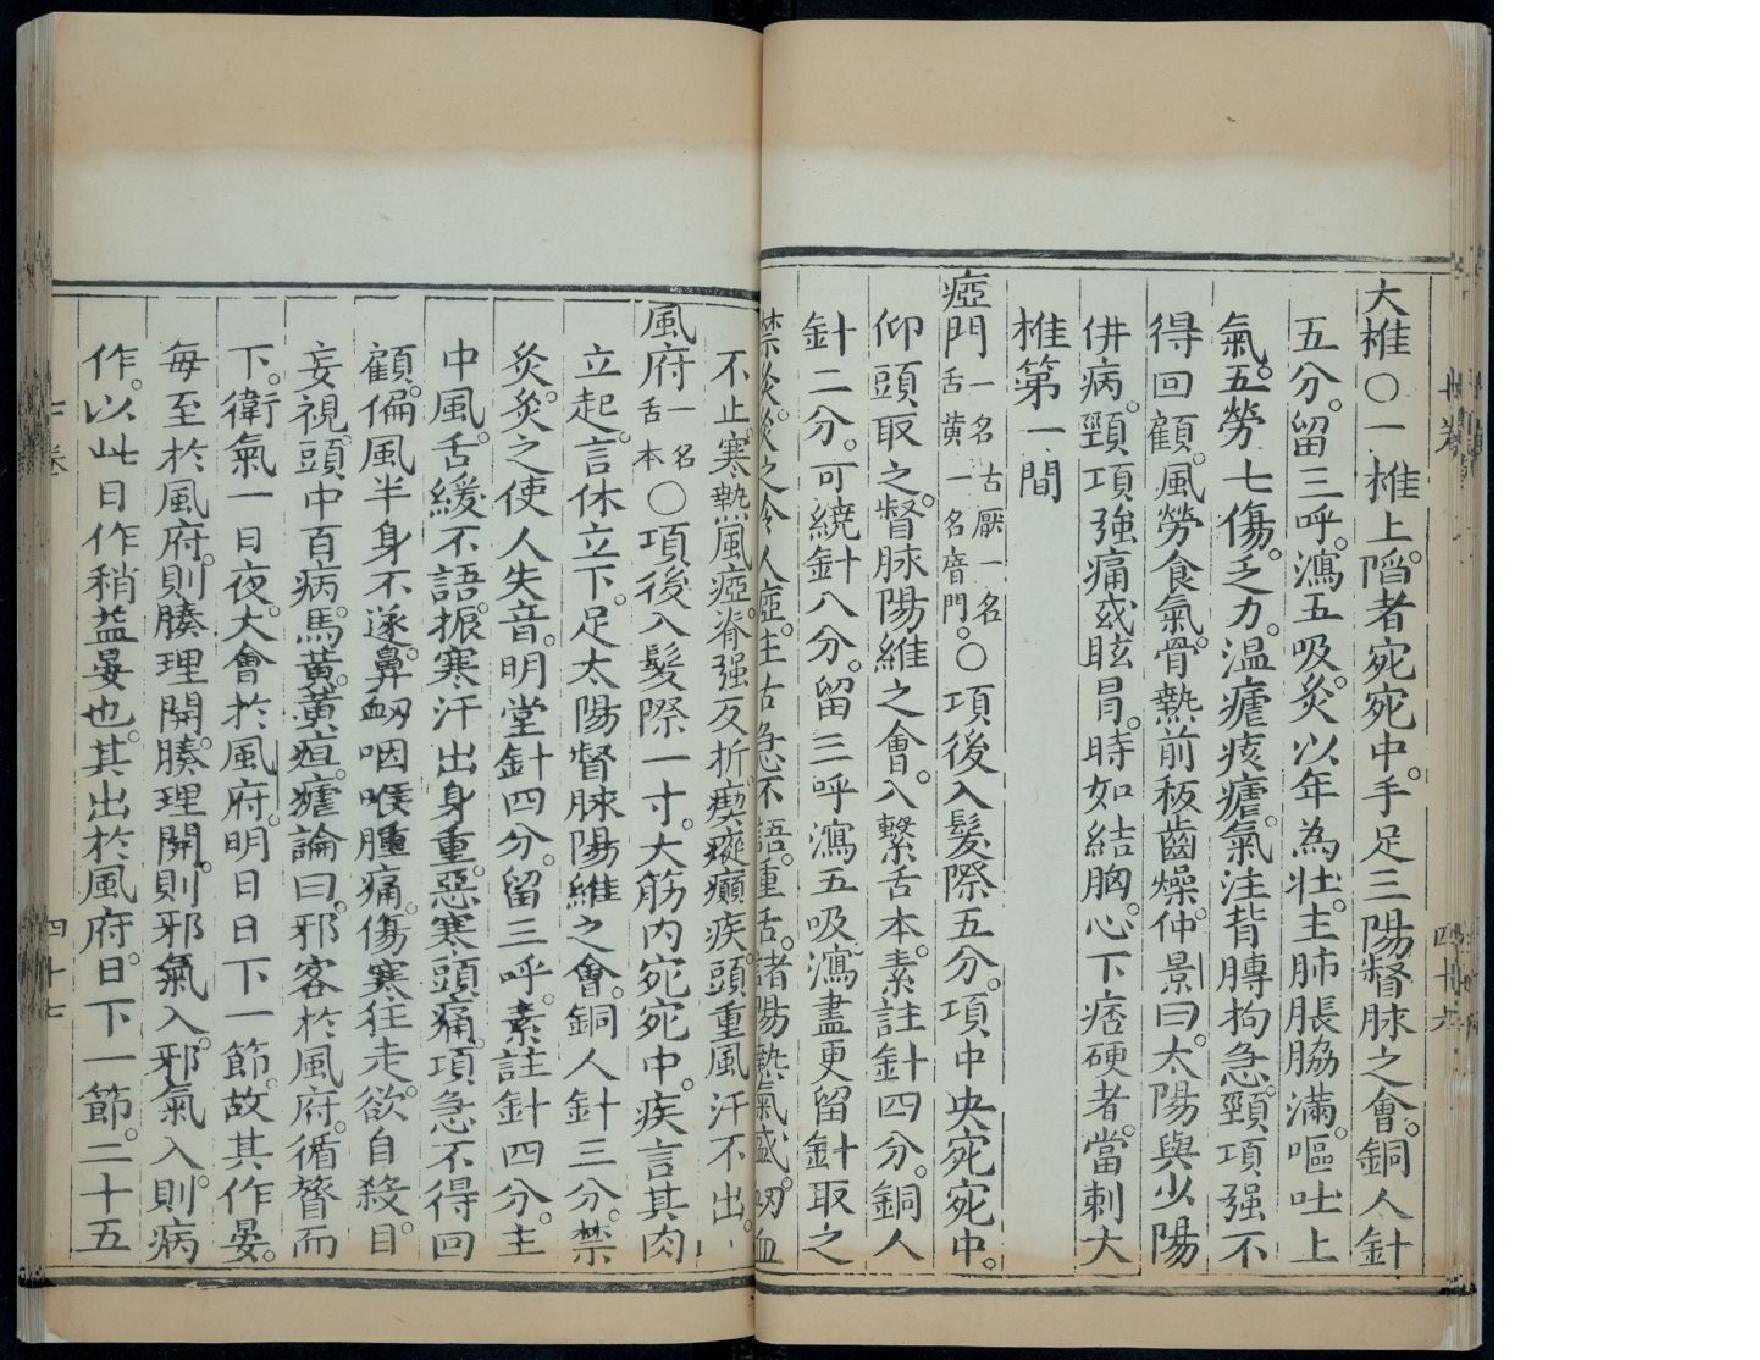 大椎○一椎上陷者宛宛中手足三陽督脉之會銅人針
五分留三呼瀉五吸灸以年為壯主肺脹脇滿嘔吐上
氣五勞七傷乏力溫瘧痎瘧氣注背膊拘急頸項强不
得回顧風勞食氣骨熱前板齒燥仲景曰太陽與少陽
併病頸項強痛或眩冒時如結胸心下痞硬者當刺大
椎第一間
瘂門一名舌厭一名舌黃一名瘖門○項後入髮際五分項中央宛宛中
仰頭取之督脉陽維之會入繫舌本素註針四分銅人
針二分可繞針八分留三呼瀉五吸瀉盡更留針取之
禁灸灸之令人瘂主舌急不語重舌諸陽熱氣盛衂血
不止寒熱風瘂脊强反折瘈瘲癲疾頭重風汗不出
風府一名舌本○項後入髮際一寸大筋內宛宛中疾言其肉
立起言休立下足太陽督脉陽維之會銅人針三分禁
灸灸之使人失音明堂針四分留三呼素註針四分主
中風舌緩不語振寒汗出身重惡寒頭痛項急不得回
顧偏風半身不遂鼻衂咽喉腫痛傷寒狂走欲自殺目
妄視頭中百病馬黃黃疸瘧論曰邪客於風府循膂而
下衛氣一日夜大會於風府明日日下一節故其作晏
每至於風府則腠理開腠理開則邪氣入邪氣入則病
作以此日作稍益晏也其出於風府日下一節二十五
七卷
四十七